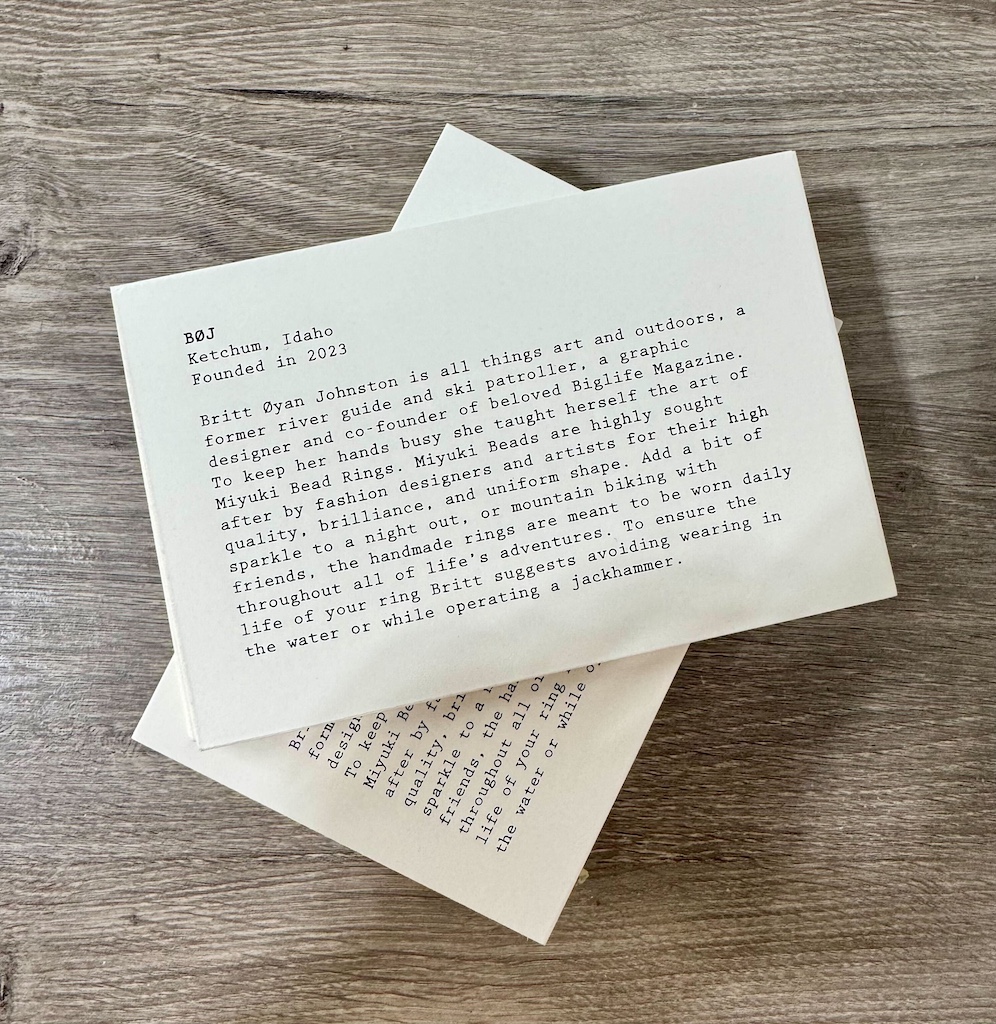 BØJ
Ketchum, Idaho
Founded in 2023
Britt Øyan Johnston is all things art and outdoors, a
former river guide and ski patroller, a graphic
designer and co-founder of beloved Biglife Magazine.
To keep her hands busy she taught herself the art of
Miyuki Bead Rings. Miyuki Beads are highly sought
after by fashion designers and artists for their high
quality, brilliance, and uniform shape. Add a bit of
sparkle to a night out, or mountain biking with
friends, the handmade rings are meant to be worn daily
throughout all of life's adventures. To ensure the
life of your ring Britt suggests avoiding wearing in
the water or while operating a jackhammer.
To keep
Miyuki
after by
quality,
sparkle to a
friends, the
throughout all
life of your ring
the water or while